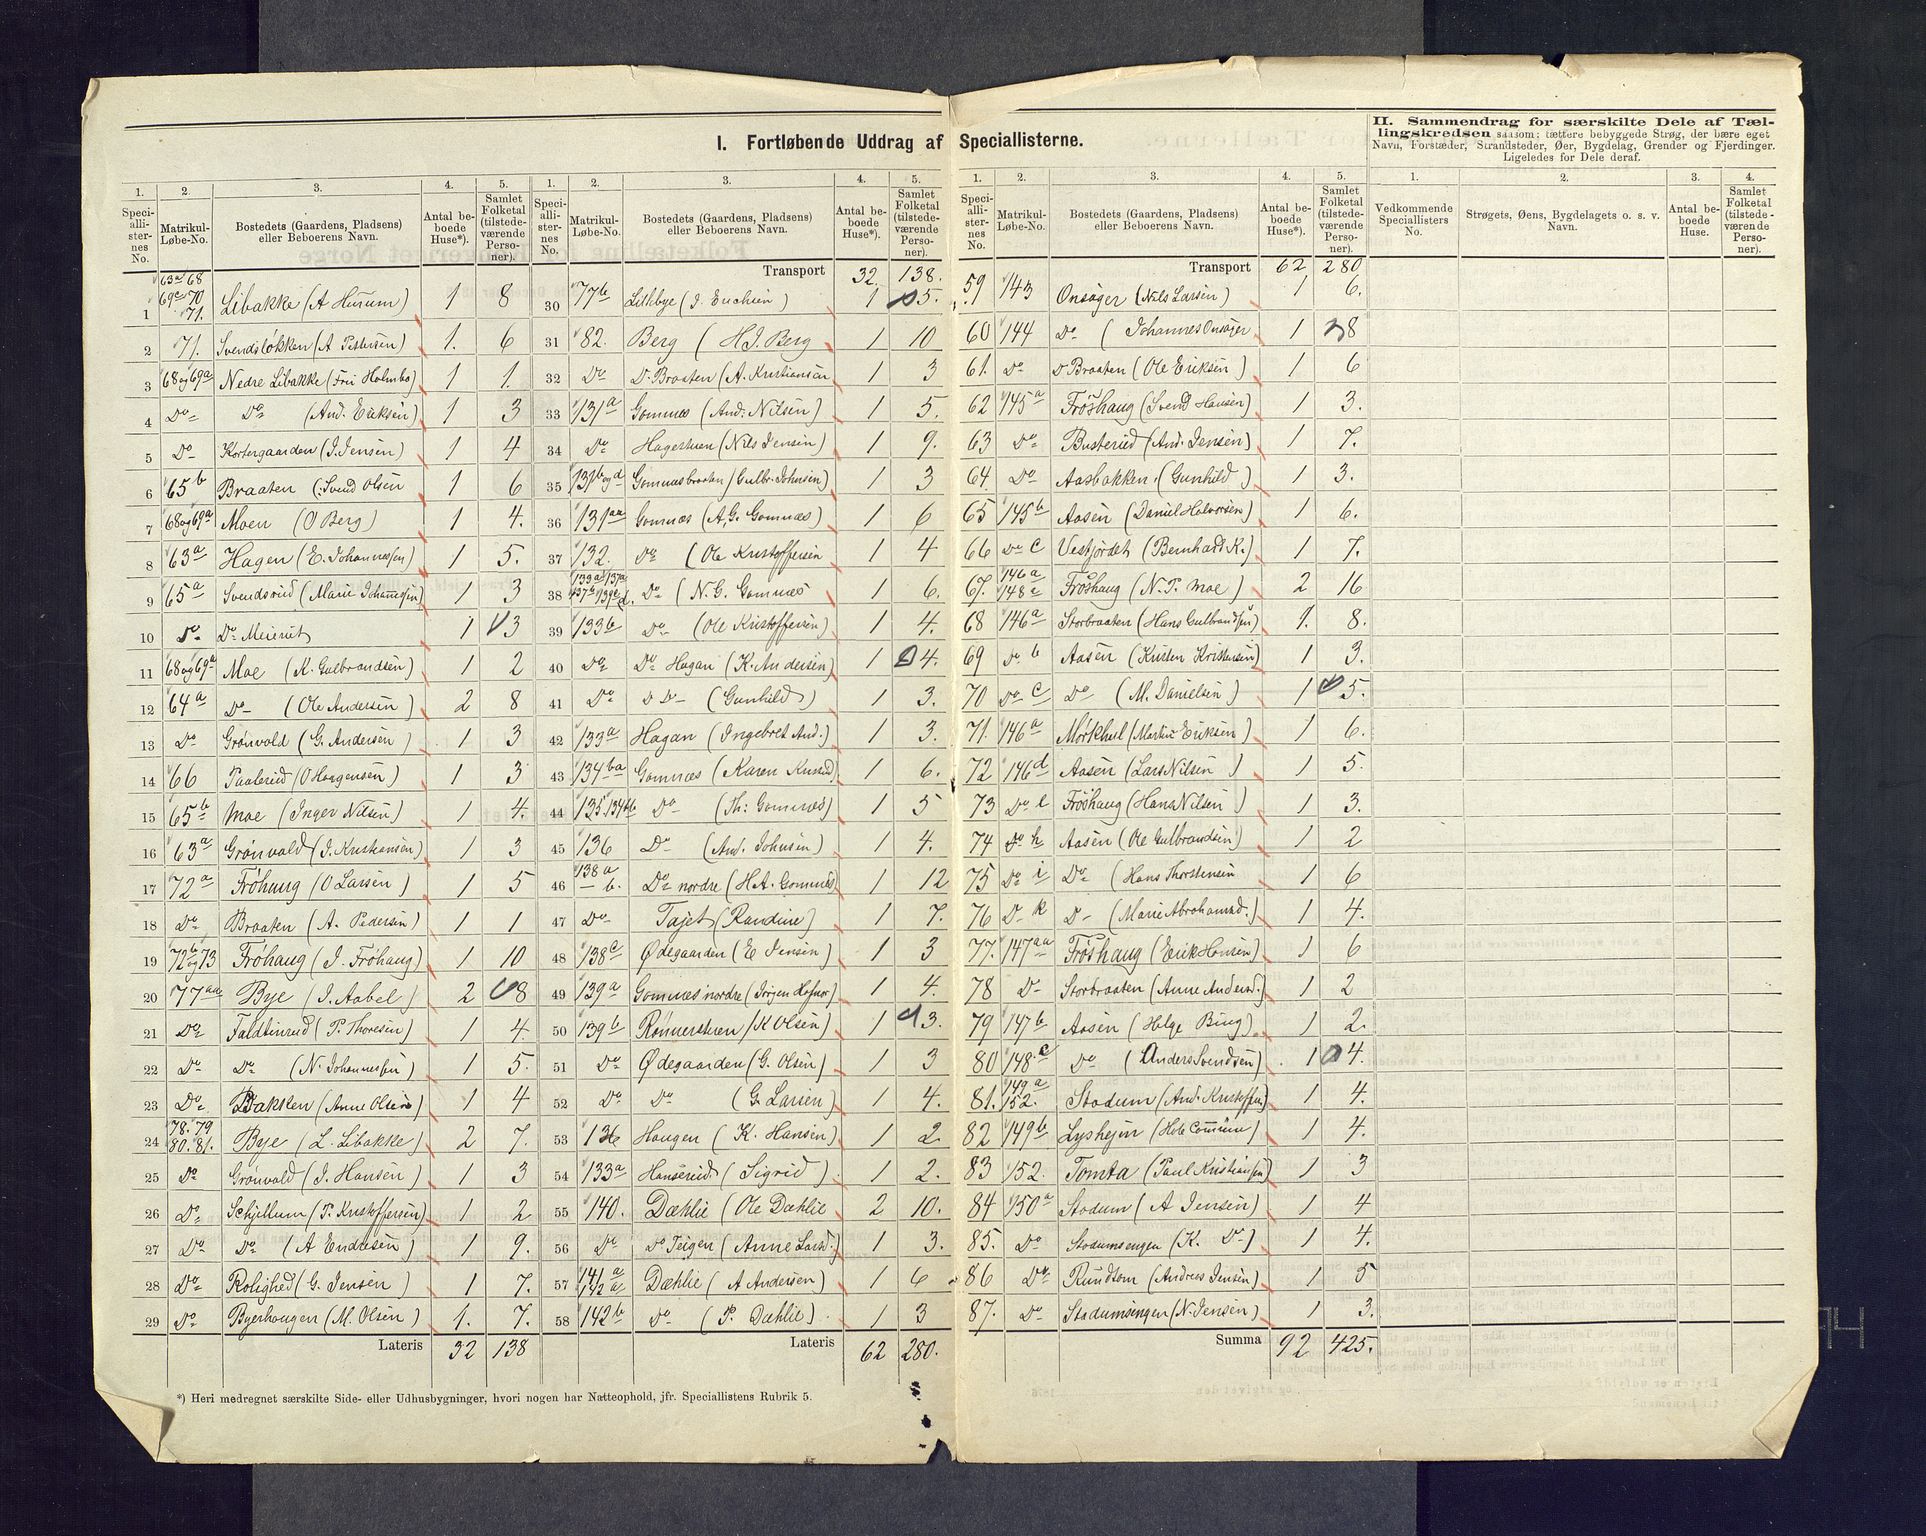 I. Fortløbende Uddrag af Speciallisterne.
II. Sammendrag for særskilte Dele af Tællingskredsen saasom: tættere bebyggede Strøg, der bære eget
Navn, Forstæder, Strandsteder, Øer, Bygdelag, Grender og Fjerdinger.
Ligeledes for Dele deraf.
1. 2. 3. 4. 5.
Speciallisternes No. Matrikul-Løbe-No. Bostedets (Gaardens, Pladsens) eller Beboerens Navn. Antal beboede Huse*). Samlet Folketal (tilstedeværende Personer).
1 63a 68 69c 70 71. Libakke (A Husum) 1 8
2 71. Svendsløkken (A Pettersen) 1. 6
3 68 og 69a Nedre Libakke (Fru Holmbo) 1 1.
4 Do Do (And. Eriksen) 1 3
5 Do Kortergaarden (J. Jensen) 1 4
6 65b Braaten (Svend Olsen 1 6
7 68 og 69a Moen (O Berg) 1 4.
8 63a Hagen (E. Johannessen) 1 5.
9 65a Svendsrud (Marie Johannessen) 1 3
10 Do Do Meieriet 1 3
11 68 og 69a Moe (K. Gulbrandsen) 1 2
12 64a Do (Ole Andersen) 2 8
13 Do Grønvold (G. Andersen) 1 3
14 66 Paalerud (O Haagensen) 1 3
15 65b Moe (Inger Nilsen) 1 4.
16 63a Grønvold (J. Kristiansen) 1 3
17 72a Frøhaug (O Larsen) 1 5
18 Do Braaten (A. Pedersen) 1 1
19 72b og 73 Frøhaug (J. Frøhaug) 1 10
20 77aa Bye (J. Aabel) 2 8
21 Do Faldtinrud (P. Thoresen) 1 4.
22 Do Do (N. Johannessen) 1 5.
23 Do Bakken (Anne Olsen) 1 4
24 78. 79 80. 81. Bye (L. Libakke) 2 7.
25 Do Grønvold (J. Hansen) 1 3
26 Do Schjellum (P. Kristoffersen) 1 2
27 Do Do (A Endresen) 1 9.
28 Do Rolighed (G. Jensen) 1 7.
29 Do Byerhaugen (M. Olsen) 1. 7.
Lateris 32 138
*) Heri medregnet særskilte Side- eller Udhusbygninger, hvori nogen har Natteophold, jfr. Speciallistens Rubrik 5.
1. 2. 3. 4. 5.
Speciallisternes No. Matrikul-Løbe-No. Bostedets (Gaardens, Pladsens) eller Beboerens Navn. Antal beboede Huse*). Samlet Folketal (tilstedeværende Personer).
Transport 32 138.
30 77b Lillebye (J. Erichsen) 1 5.
31 82. Berg (H. J. Berg 1 10
32 Do Do Braaten (A. Kristiansen 1 3
33 131a Gomnes (And. Nilsen) 1 5.
34 Do Hagestuen (Nils Jensen) 1 9.
35 131b og d Gomnesbraaten (Gulbr. Johnsen) 1 3
36 131aa Gomnes (A. G. Gomnæs) 1 6
37 132. Do (Ole Kristoffersen 1 4
38 Do (N. G. Gomnæs 1 6.
39 133b Do (Ole Kristoffersen) 1 4.
40 Do Do Hagan (K. Andersen) 1 4.
41 Do D D (Gunhild) 1 3.
42 133a Hagan (Ingebret And.) 1 3.
43 134ba Gomnæs (Karen Knrud) 1 6.
44 135. 134bb Do (Th: Gomnæs) 1 5
45 136 Do (And. Johnsen) 1 4.
46 138a - b. Do nordre (H. A. Gomnæs 1 12
47 Do Tajet (Randine) 1 7.
48 138c Ødegaarden (E Jensen) 1 3
49 139a Gomnæs nordre (Jørgen Hofnor) 1 4.
50 139b Rønnerstuen (K Olsen) 1 3.
51 Do Ødegaarden (G. Olsen) 1 3
52 Do Do (G. Larsen) 1 4.
53 136 Haugen (K. Hansen) 1 2
54 133a Hanserud (Sigrid) 1 2.
55 140. Dæhlie (Ole Dæhlie 2 10.
56 Do Do Teigen (Anne Larsd.) 1 3.
57 141a 142a Dæhlie (A Andersen) 1 6
58 142b Do (P. Dæhlie) 1 3
Lateris 62 280.
1. 2. 3. 4. 5.
Speciallisternes No. Matrikul-Løbe-No. Bostedets (Gaardens, Pladsens) eller Beboerens Navn. Antal beboede Huse*). Samlet Folketal (tilstedeværende Personer).
Transport 62 280
59 143 Onsager (Nils Larsen) 1 6.
60 144 Do (Johannes Onsager 1 8
61. Do D Braaten (Ole Eriksen) 1 6
62 145a Frøshaug (Svend Hansen) 1 3.
63 Do Busterud (And. Jensen) 1 7.
64. Do Aasbakken (Gunhild) 1 3.
65 145b Aasen (Daniel Halvorsen) 1 6.
66 Do c Vestjordet (Bernhard K.) 1 7.
67. 146a 148c Frøshaug (N. P. Moe) 2 16
68 146a Storbraaten (Hans Gulbrandsen) 1. 8.
69 Do b Aasen (Kristen Kristensen) 1 3.
70 Do c Do (M. Danielsen) 1 5.
71. 146a Mørkhul (Martin Eriksen) 1 6.
72 146d Aasen (Lars Nilsen) 1 5.
73 Do e Frøshaug (Hans Nilsen) 1 3.
74 Do h Aasen (Ole Gulbrandsen) 1 2
75 Do i Do (Hans Thorstensen 1 6
76 D k D (Marie Abrahamsd.) 1 4.
77. 147aa Frøshaug (Erik Hansen) 1 6
78 D Storbraaten (Anne Andersd.) 1 2
79 147b Aasen (Helge Bing) 1 2.
80 148c Do (Anders Svendsen) 1 4.
81. 149a 152. Stadum (And. Kristoffers) 1 4.
82 149b Lyshejm (Hole Commune) 1 4.
83 152. Tomta (Paul Kristiansen) 1 3
84 150a Stadum (A Jensen) 1 4
85. Do Stadumsengen (K. Do) 1 4.
86 Do Rundtom (Andreas Jensen) 1 5
87. Do Stadumsengen (N. Jensen) 1 3.
Summa 92 425.
1. 2. 3. 4.
Vedkommende Speciallisters No. Strøgets, Øens, Bygdelagets o. s. v. Navn. Antal beboede Huse. Samlet Folketal (tilstedeværende Personer).